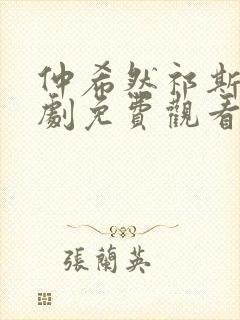 仲希然祁斯
劇免費觀看
張蘭英